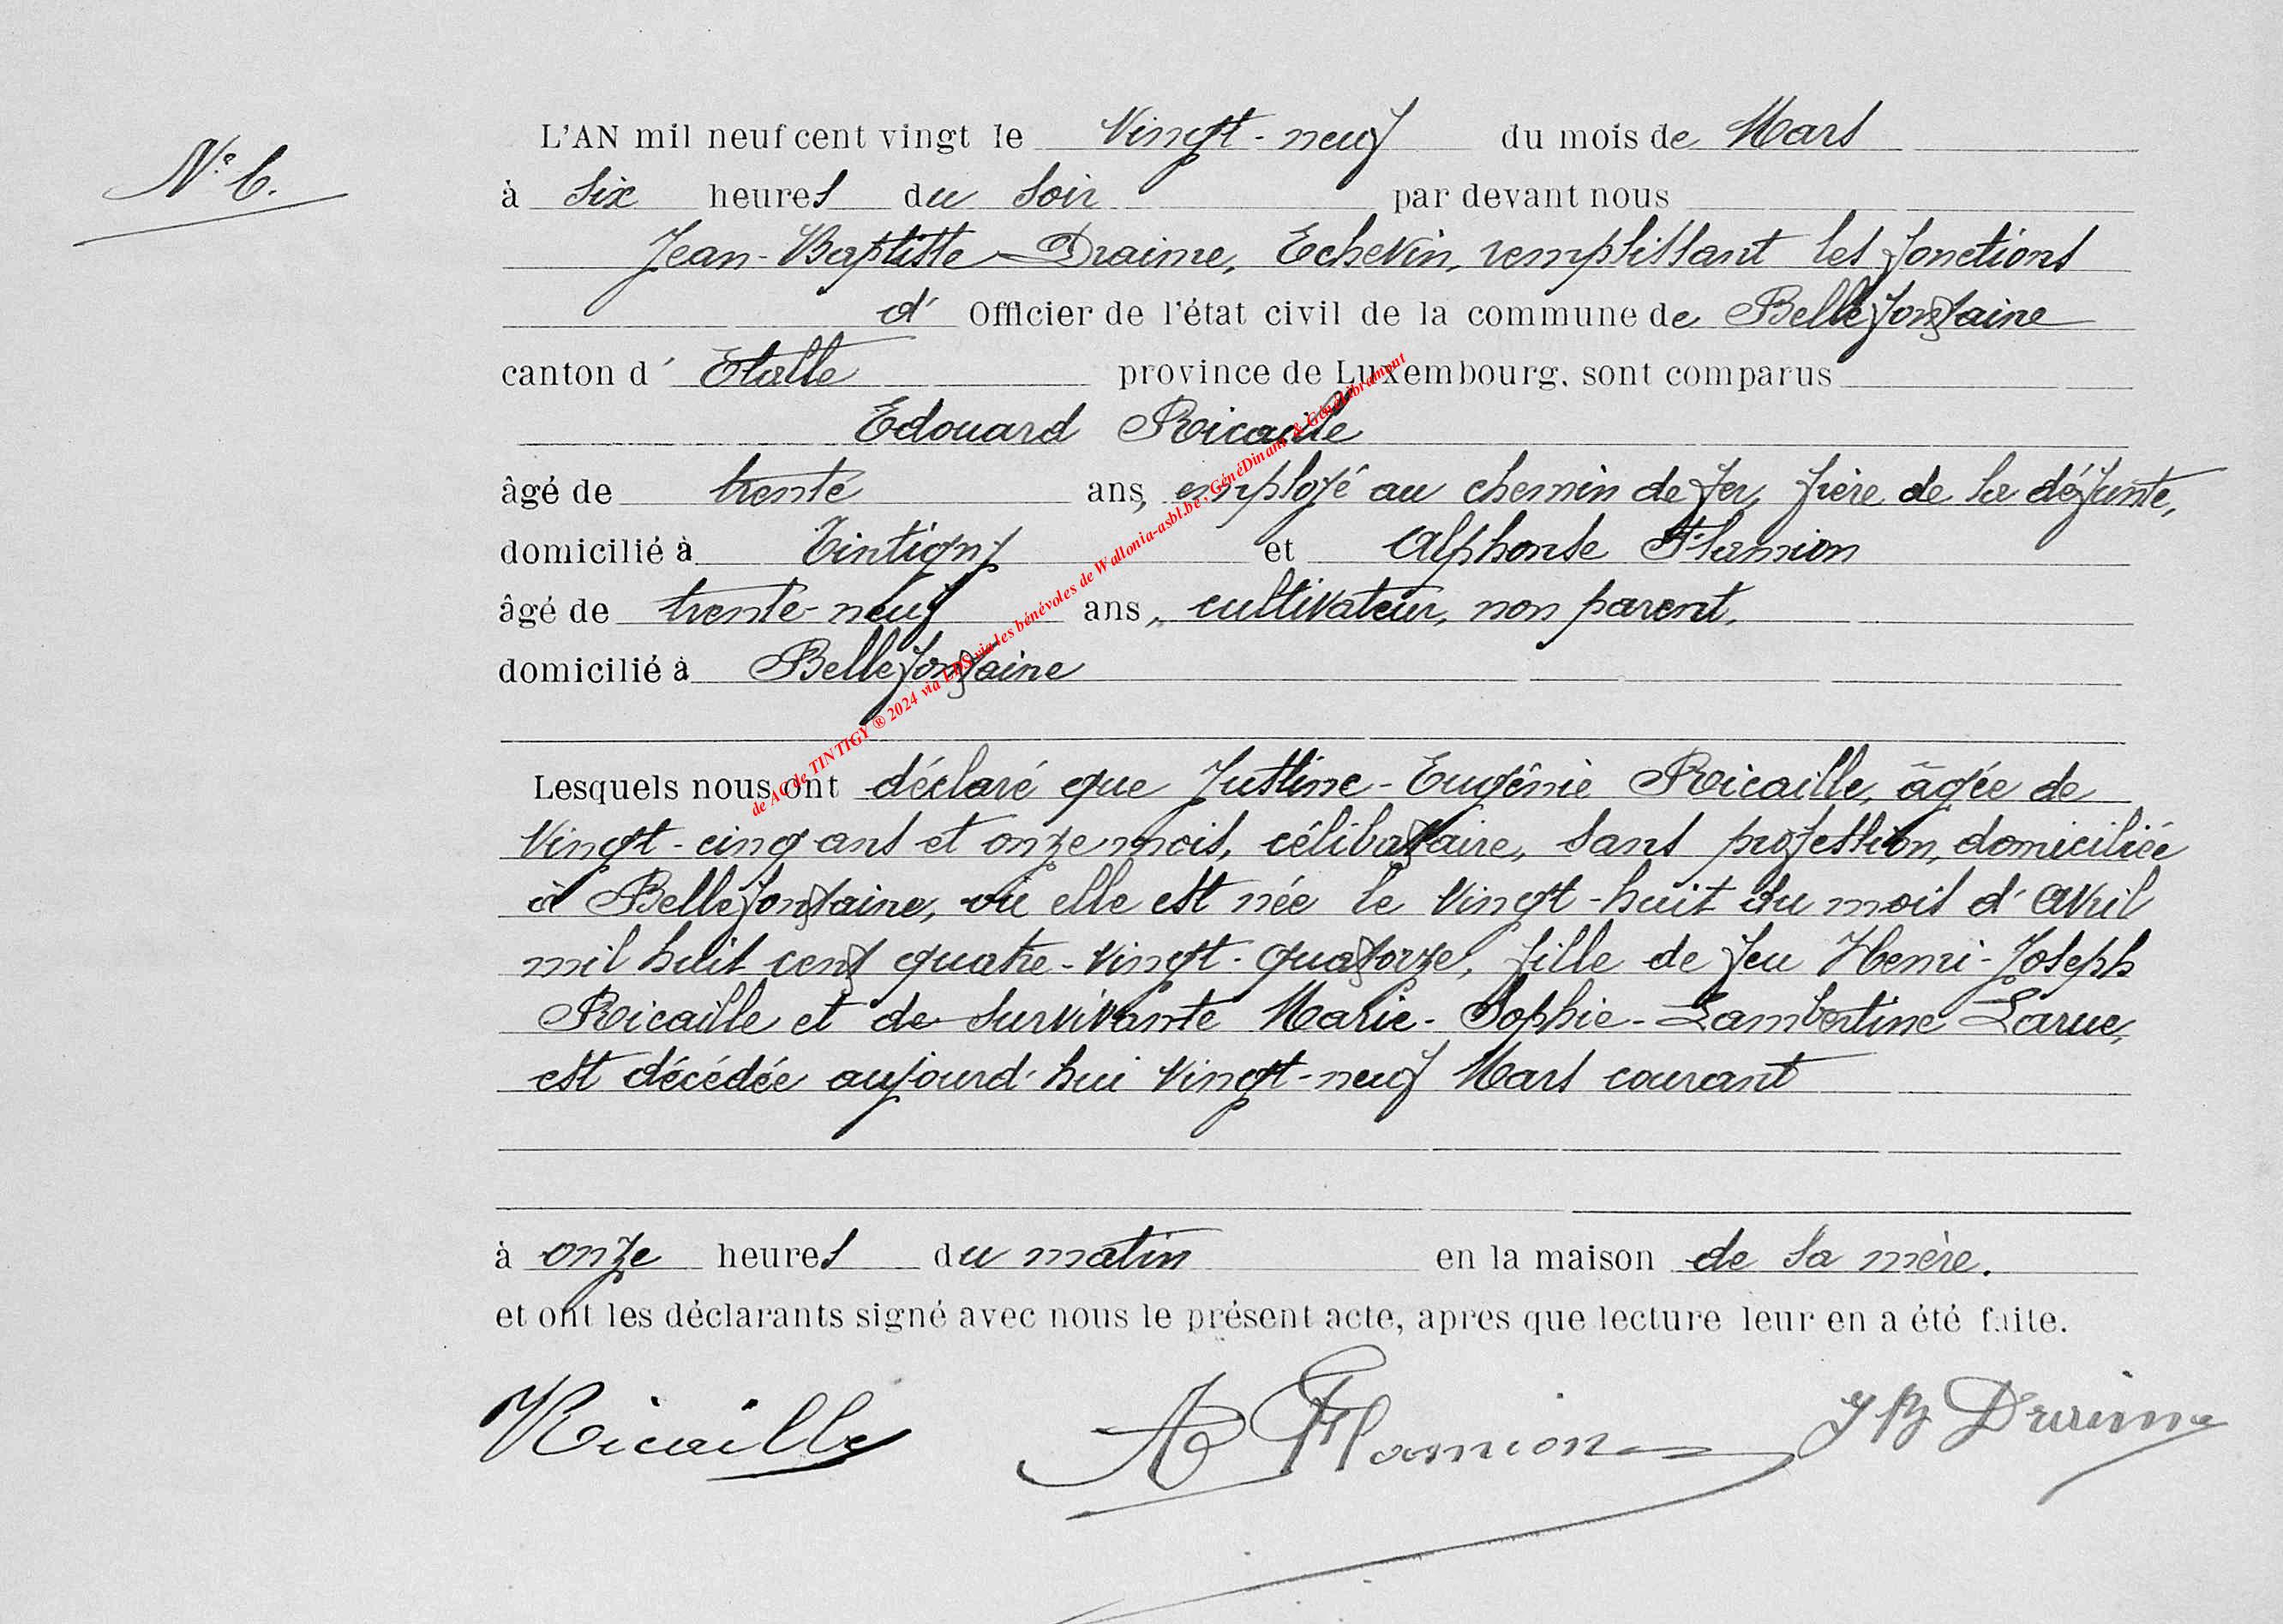 N° 6.
L'AN mil neuf cent vingt le Vingt-neuf du mois de Mars
à six heures du soir par devant nous
Jean-Baptiste Draime, Echevin, remplissant les fonctions
d' Officier de l'état civil de la commune de Bellefontaine
canton d' Etalle province de Luxembourg, sont comparus
Edouard Ricaille
âgé de trente ans, employé au chemin de fer, frère de la défunte,
domicilié à Tintigny et Alphonse Flamion
âgé de trente-neuf ans, cultivateur, non parent,
domicilié à Bellefontaine
de AC de TINTIGY ® 2024 via LDS via les bénévoles de Wallonia-asbl.be, GénéDinant & GénéLibramont
Lesquels nous ont déclaré que Justine-Eugénie Ricaille, âgée de
vingt-cinq ans et onze mois, célibataire, sans profession, domiciliée
à Bellefontaine, où elle est née le vingt-huit du mois d'avril
mil huit cent quatre-vingt-quatorze, fille de feu Henri-Joseph
Ricaille et de survivante Marie-Sophie-Lambertine Larue,
est décédée aujourd'hui vingt-neuf Mars courant
à onze heures du matin en la maison de sa mère.
et ont les déclarants signé avec nous le présent acte, apres que lecture leur en a été faite.
Ricaille A Flamion JB Draime